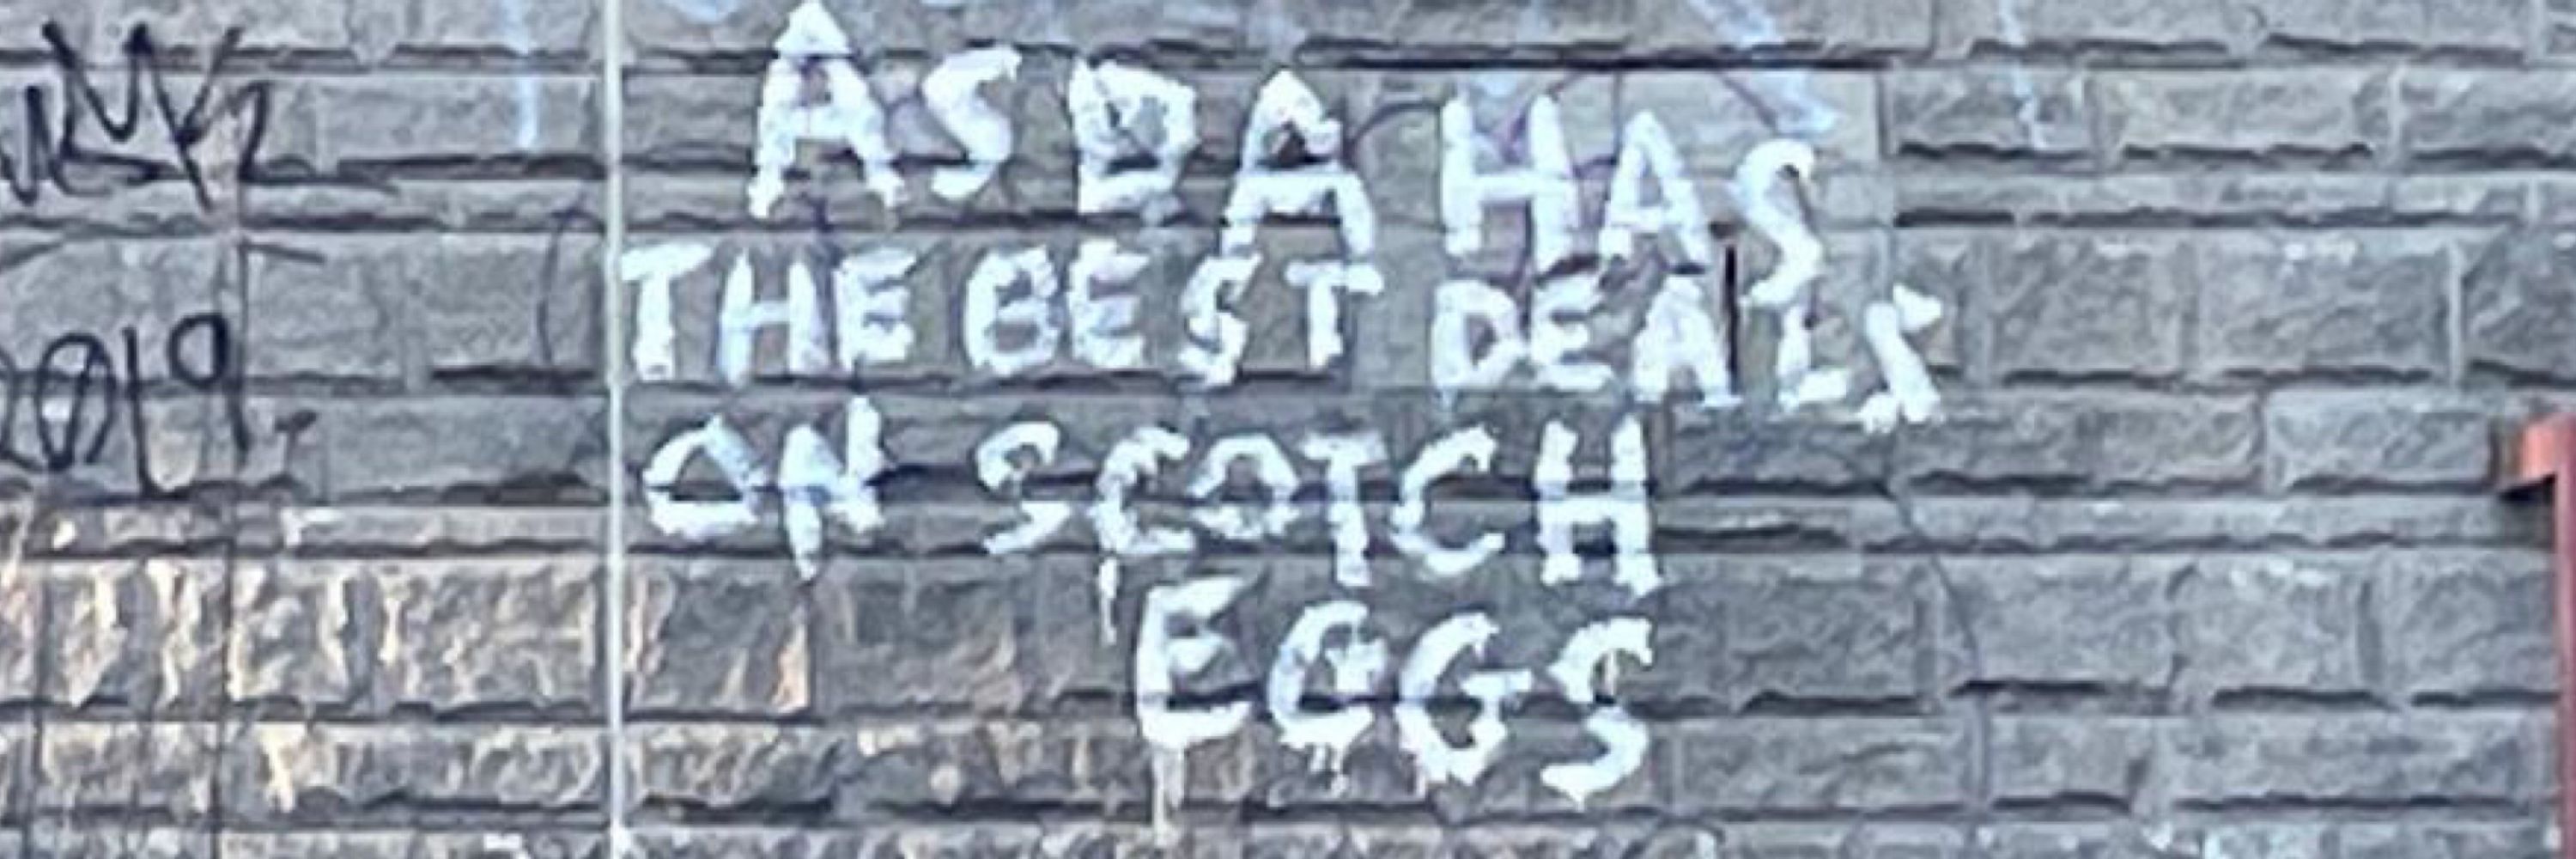 ASDA HAS
THE BEST DEALS
ON SCOTCH
EGGS
2019